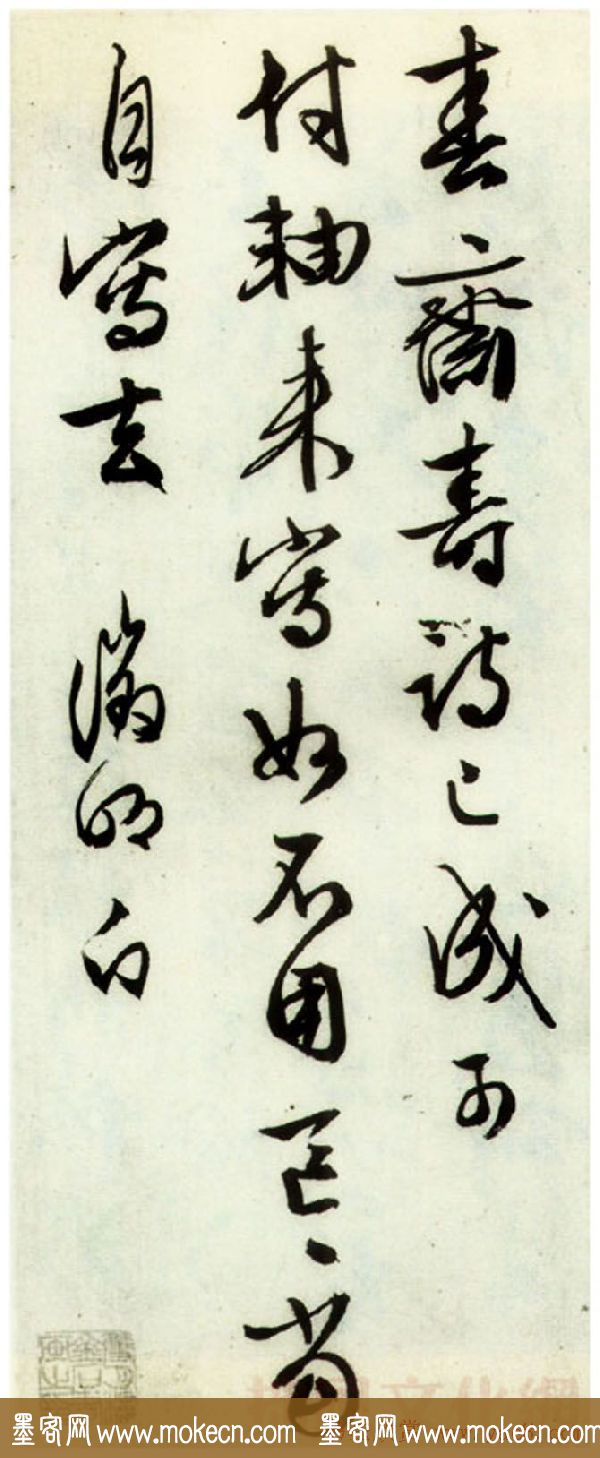 春齋壽詩已成可
付軸來寫如不用區區當
自寫去 徵明白
墨客网 www.mokecn.com 墨客网 www.mokecn.com